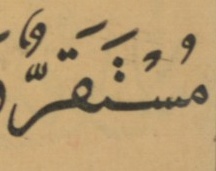 مُسْتَقَرٌّ